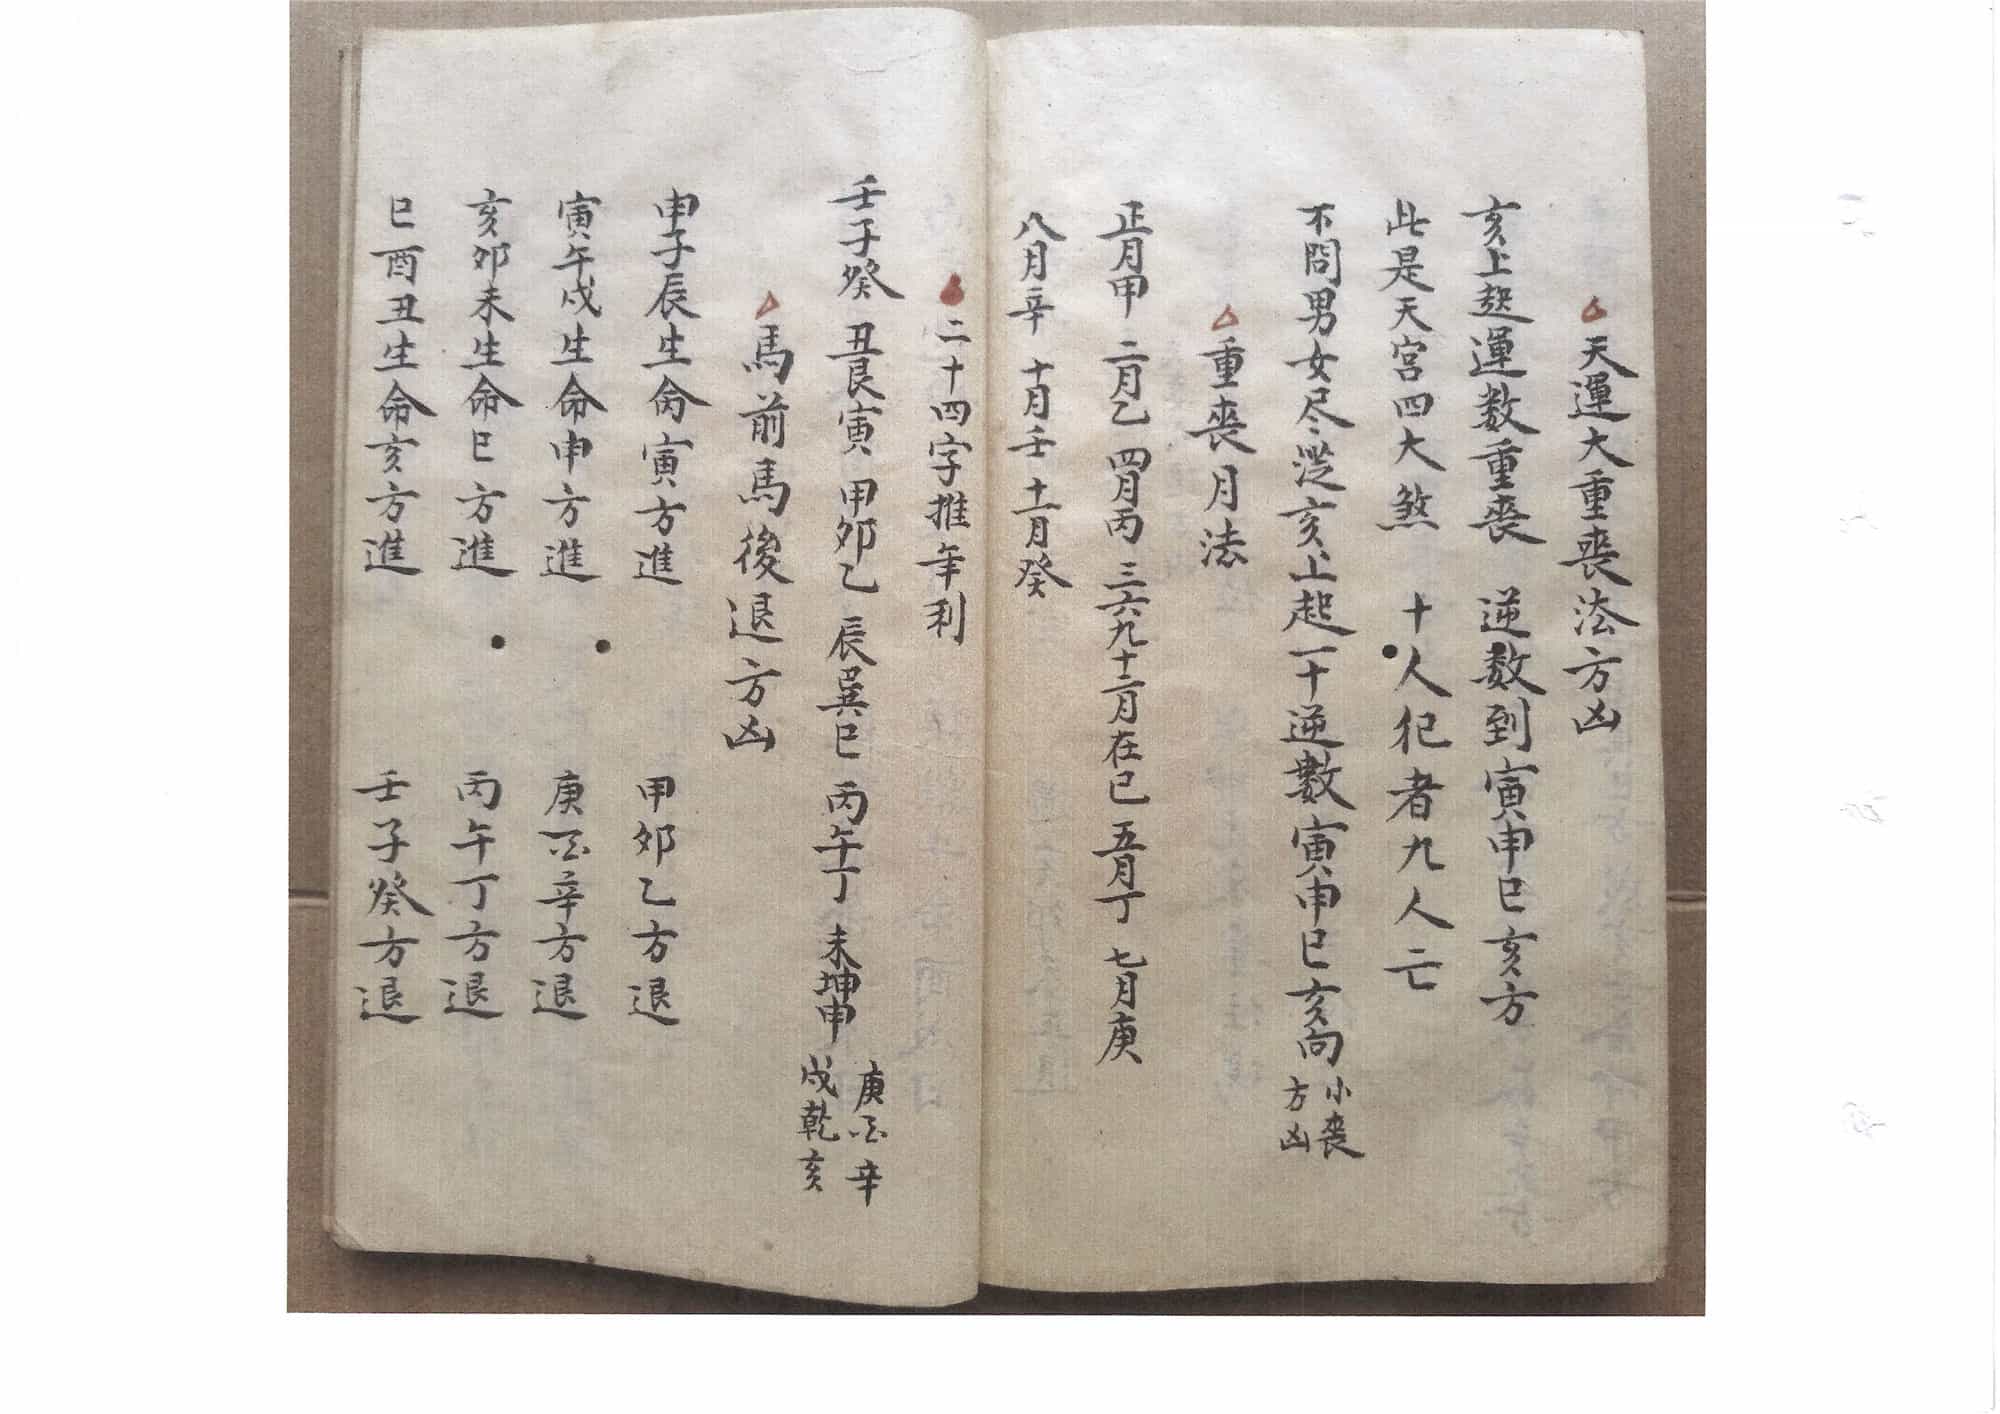 天運大重喪法方凶
亥上起運数重喪 逆数到寅申巳亥方
此是天宮四大煞 十人犯者九人亡
不問男女尽從亥上起一十逆數寅申巳亥向 小喪方凶
重喪月法
正月甲 二月乙 四月丙 三六九十二月在己 五月丁 七月庚
八月辛 十月壬 十一月癸
二十四字推年利
壬子癸 丑艮寅 甲卯乙 辰巽巳 丙午丁 未坤申 庚酉辛 戌乾亥
馬前馬後退方凶
申子辰生命寅方進 甲卯乙方退
寅午戌生命申方進 庚酉辛方退
亥卯未生命巳方進 丙午丁方退
巳酉丑生命亥方進 壬子癸方退